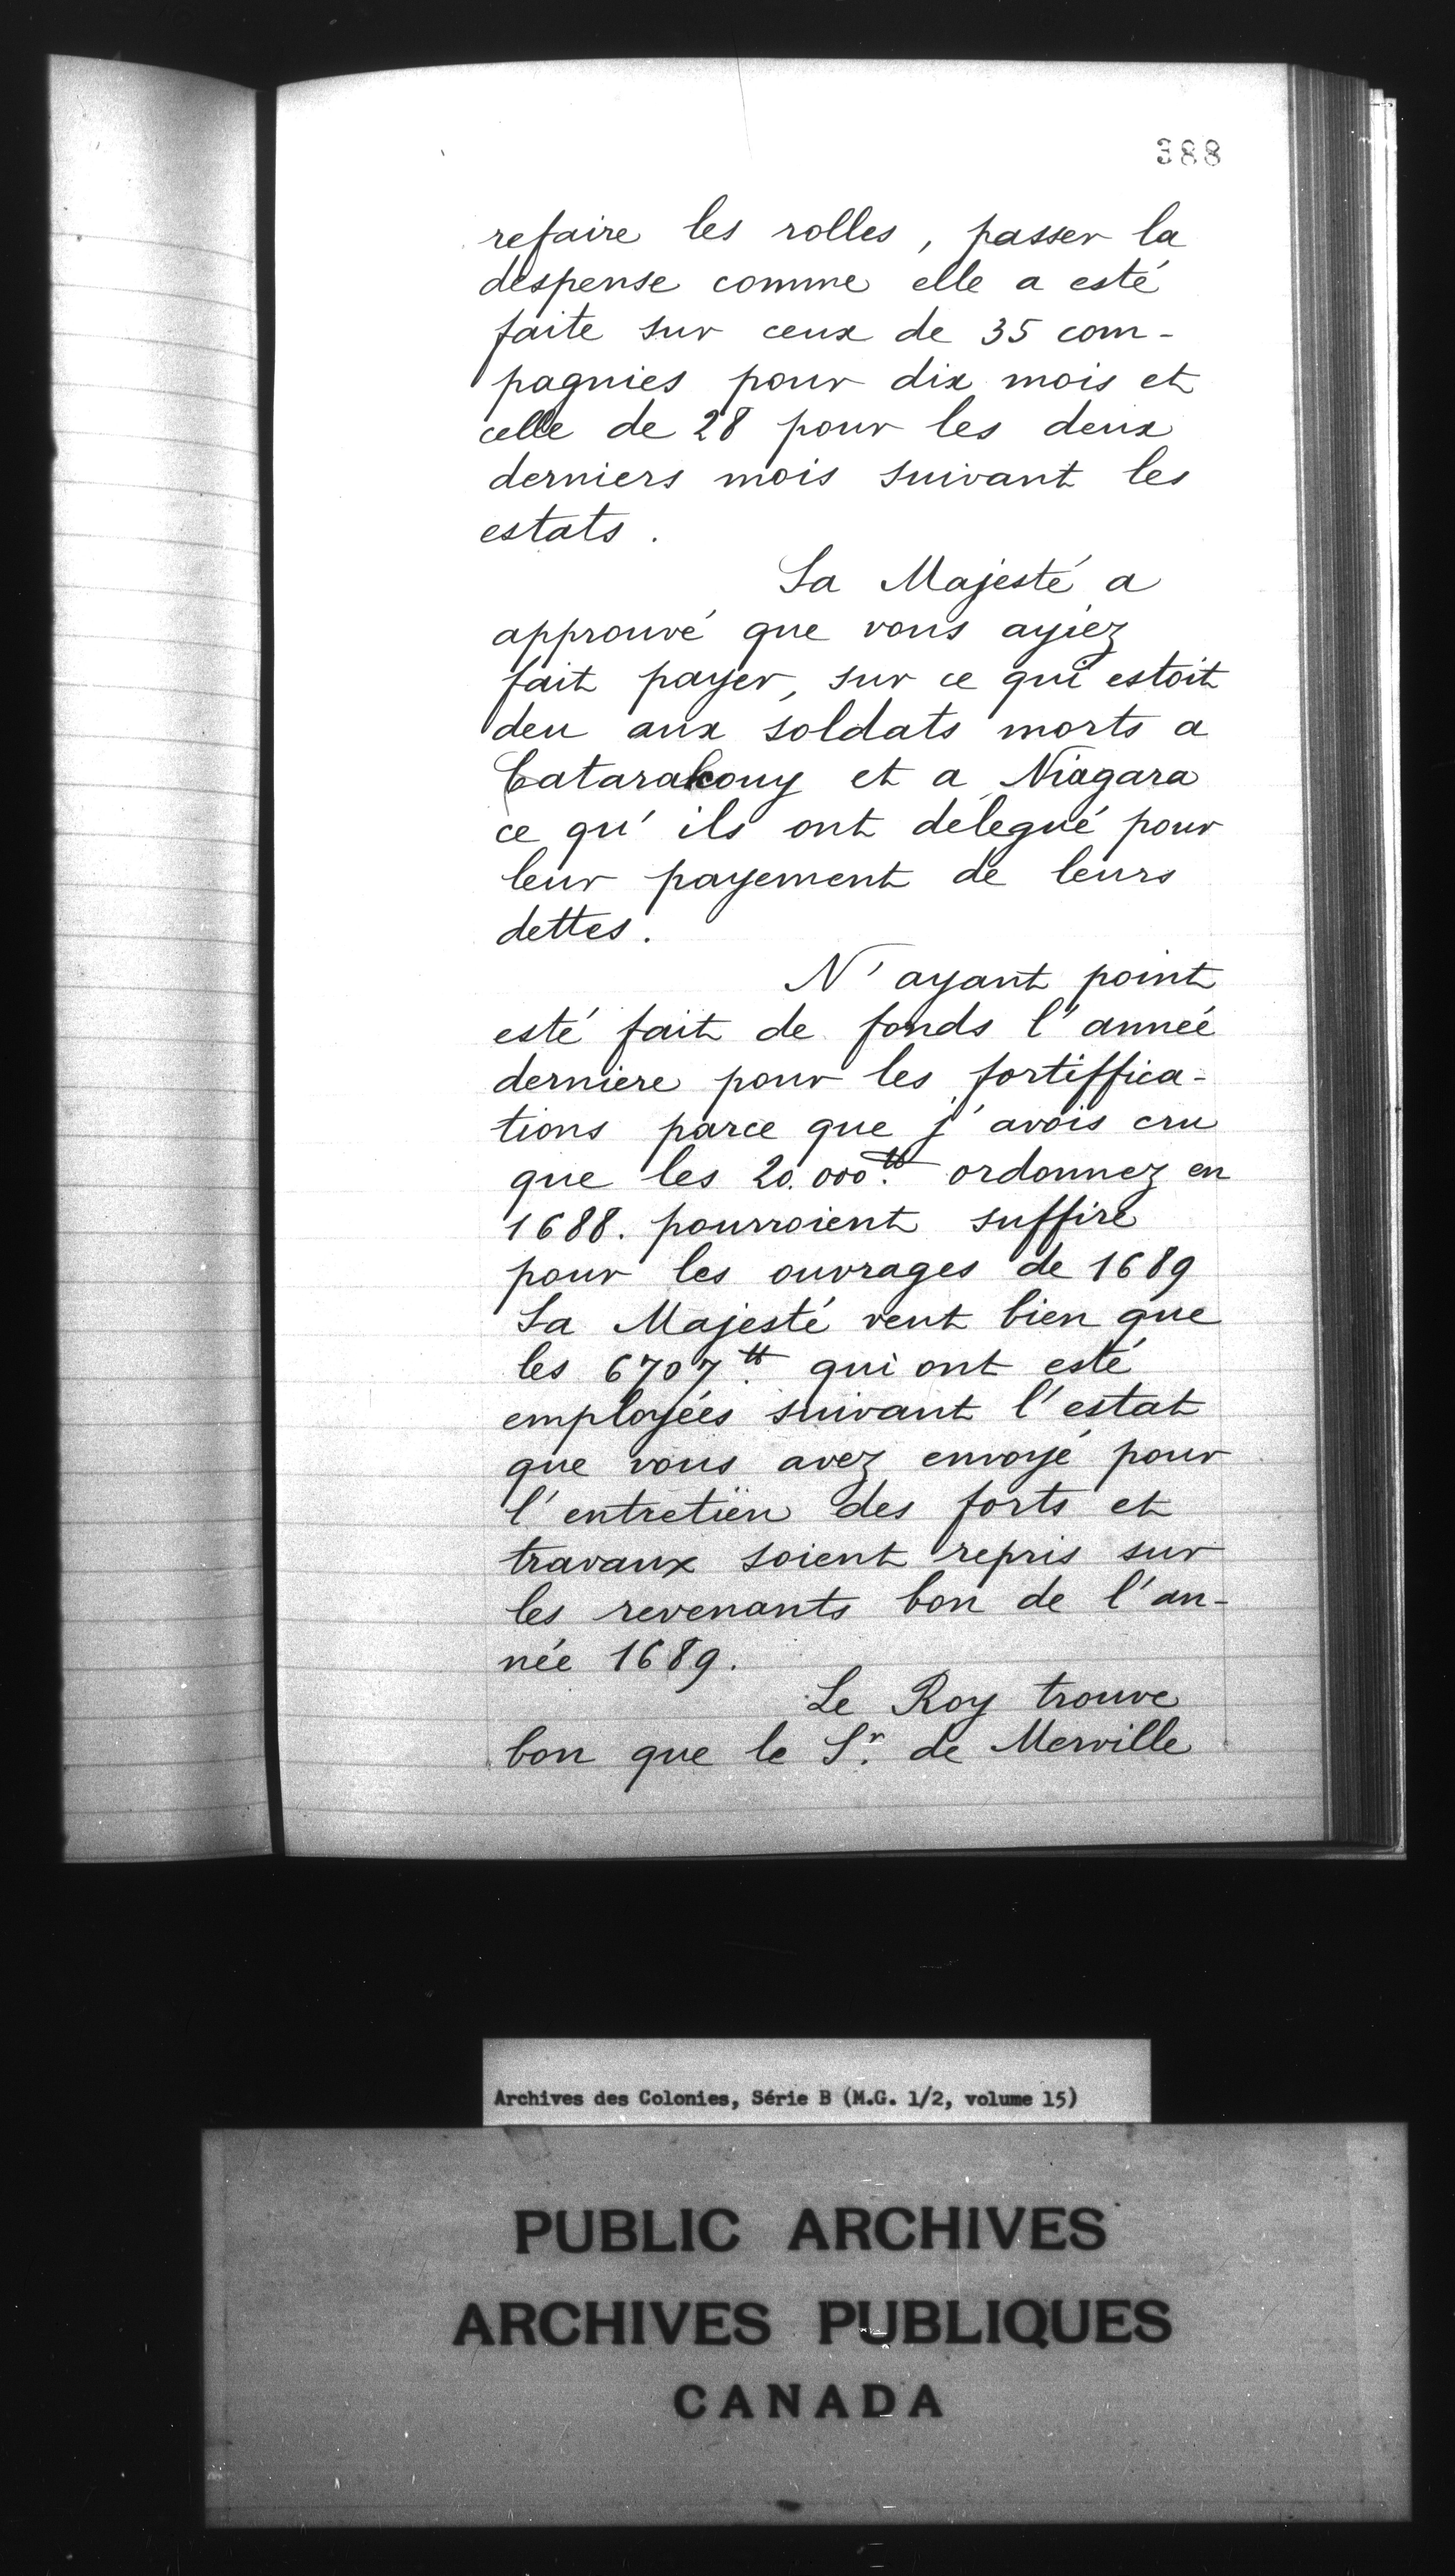 388
refaire les rolles, passer la
despense comme elle a esté
faite sur ceux de 35 com-
pagnies pour dix mois et
celle de 28 pour les deux
derniers mois suivant les
estats.
Sa Majesté a
approuvé que vous ayiez
fait payer, sur ce qui estoit
deu aux soldats morts a
Catarakouy et a Niagara
ce qu'ils ont délegué pour
leur payement de leurs
dettes.
N'ayant point
esté fait de fonds l'année
derniere pour les fortiffica-
tions parce que j'avois cru
que les 20.000 ₶. ordonnez en
1688. pourroient suffire
pour les ouvrages de 1689
Sa Majesté veut bien que
les 6707 ₶. qui ont esté
employées suivant l'estat
que vous avez envoyé pour
l'entretien des forts et
travaux soient repris sur
les revenants bon de l'an-
née 1689.
Le Roy trouve
bon que le Sr. de Merville
Archives des Colonies, Série B (M.G. 1/2, volume 15)
PUBLIC ARCHIVES
ARCHIVES PUBLIQUES
CANADA